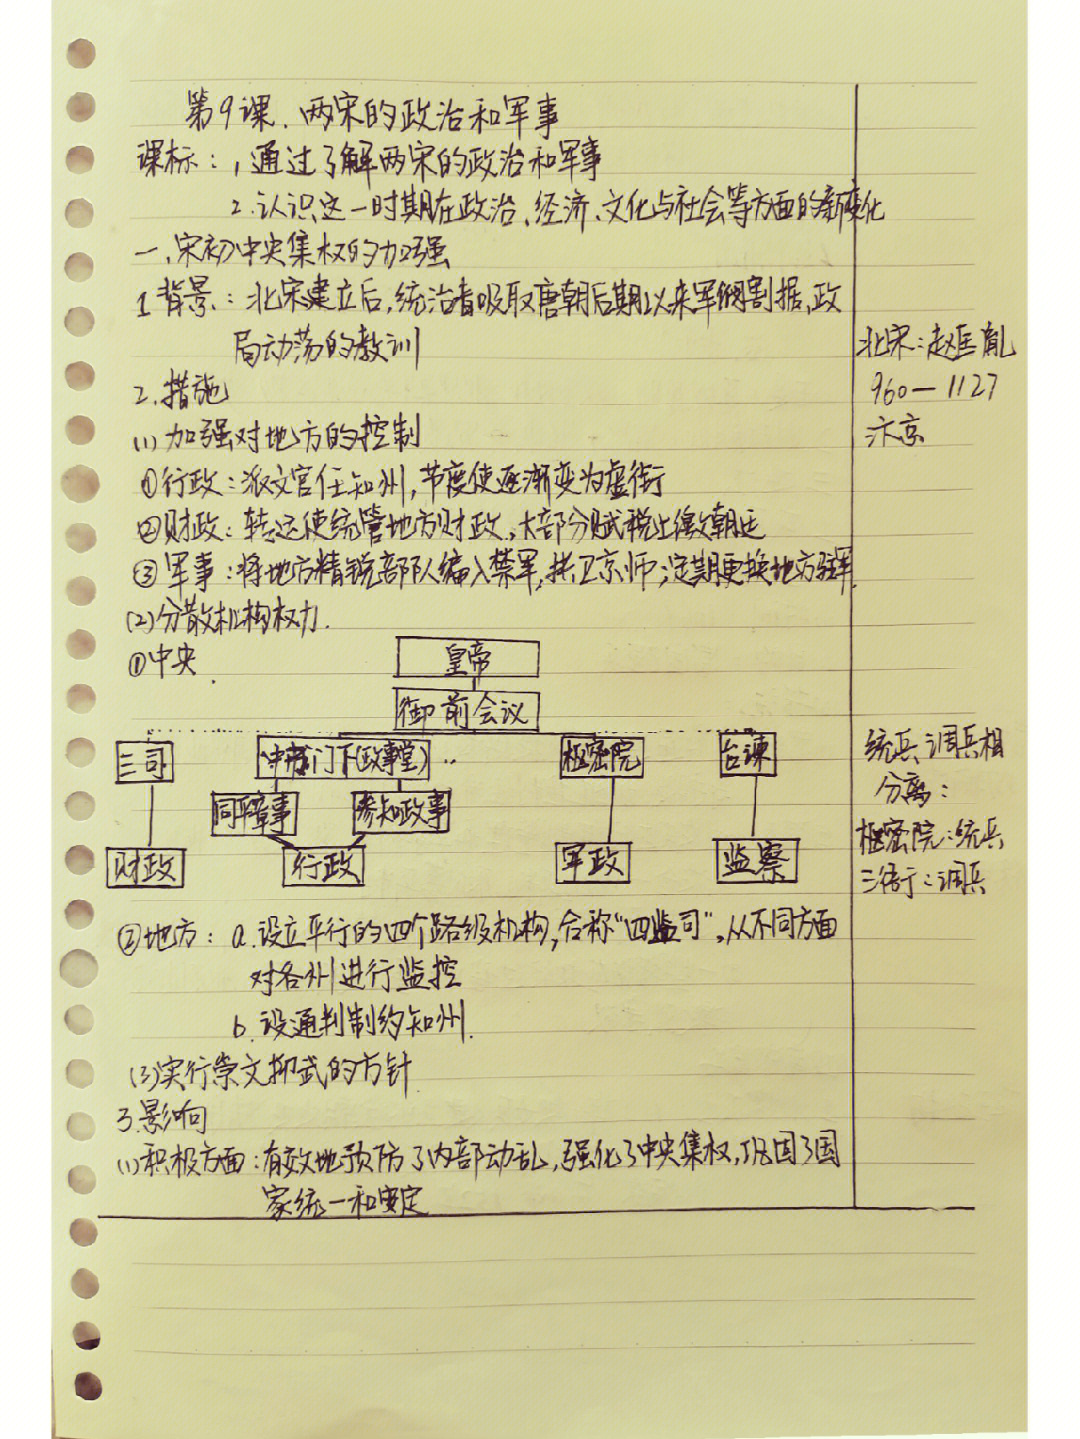 第9课、两宋的政治和军事
课标：1,通过了解两宋的政治和军事
2.认识这一时期在政治、经济、文化与社会等方面的新变化
一、宋初中央集权的加强
1.背景：北宋建立后,统治者吸取唐朝后期以来军阀割据、政
局动荡的教训
北宋：赵匡胤
960—1127
汴京
2.措施
(1)加强对地方的控制
①行政：派文官任知州,节度使逐渐变为虚衔
②财政：转运使统管地方财政,大部分赋税上缴朝廷
③军事：将地方精锐部队编入禁军,拱卫京师;定期更换地方驻军
(2)分散机构权力.
①中央
皇帝
御前会议
三司 中书门下(政事堂) 枢密院 台谏
同平章事 参知政事
财政 行政 军政 监察
统兵、调兵相
分离：
枢密院：统兵
三衙：调兵
②地方：a.设立平行的四个路级机构,合称"四监司",从不同方面
对各州进行监控
b.设通判制约知州.
(3)实行崇文抑武的方针
3.影响
(1)积极方面：有效地预防了内部动乱,强化了中央集权,巩固了国
家统一和安定